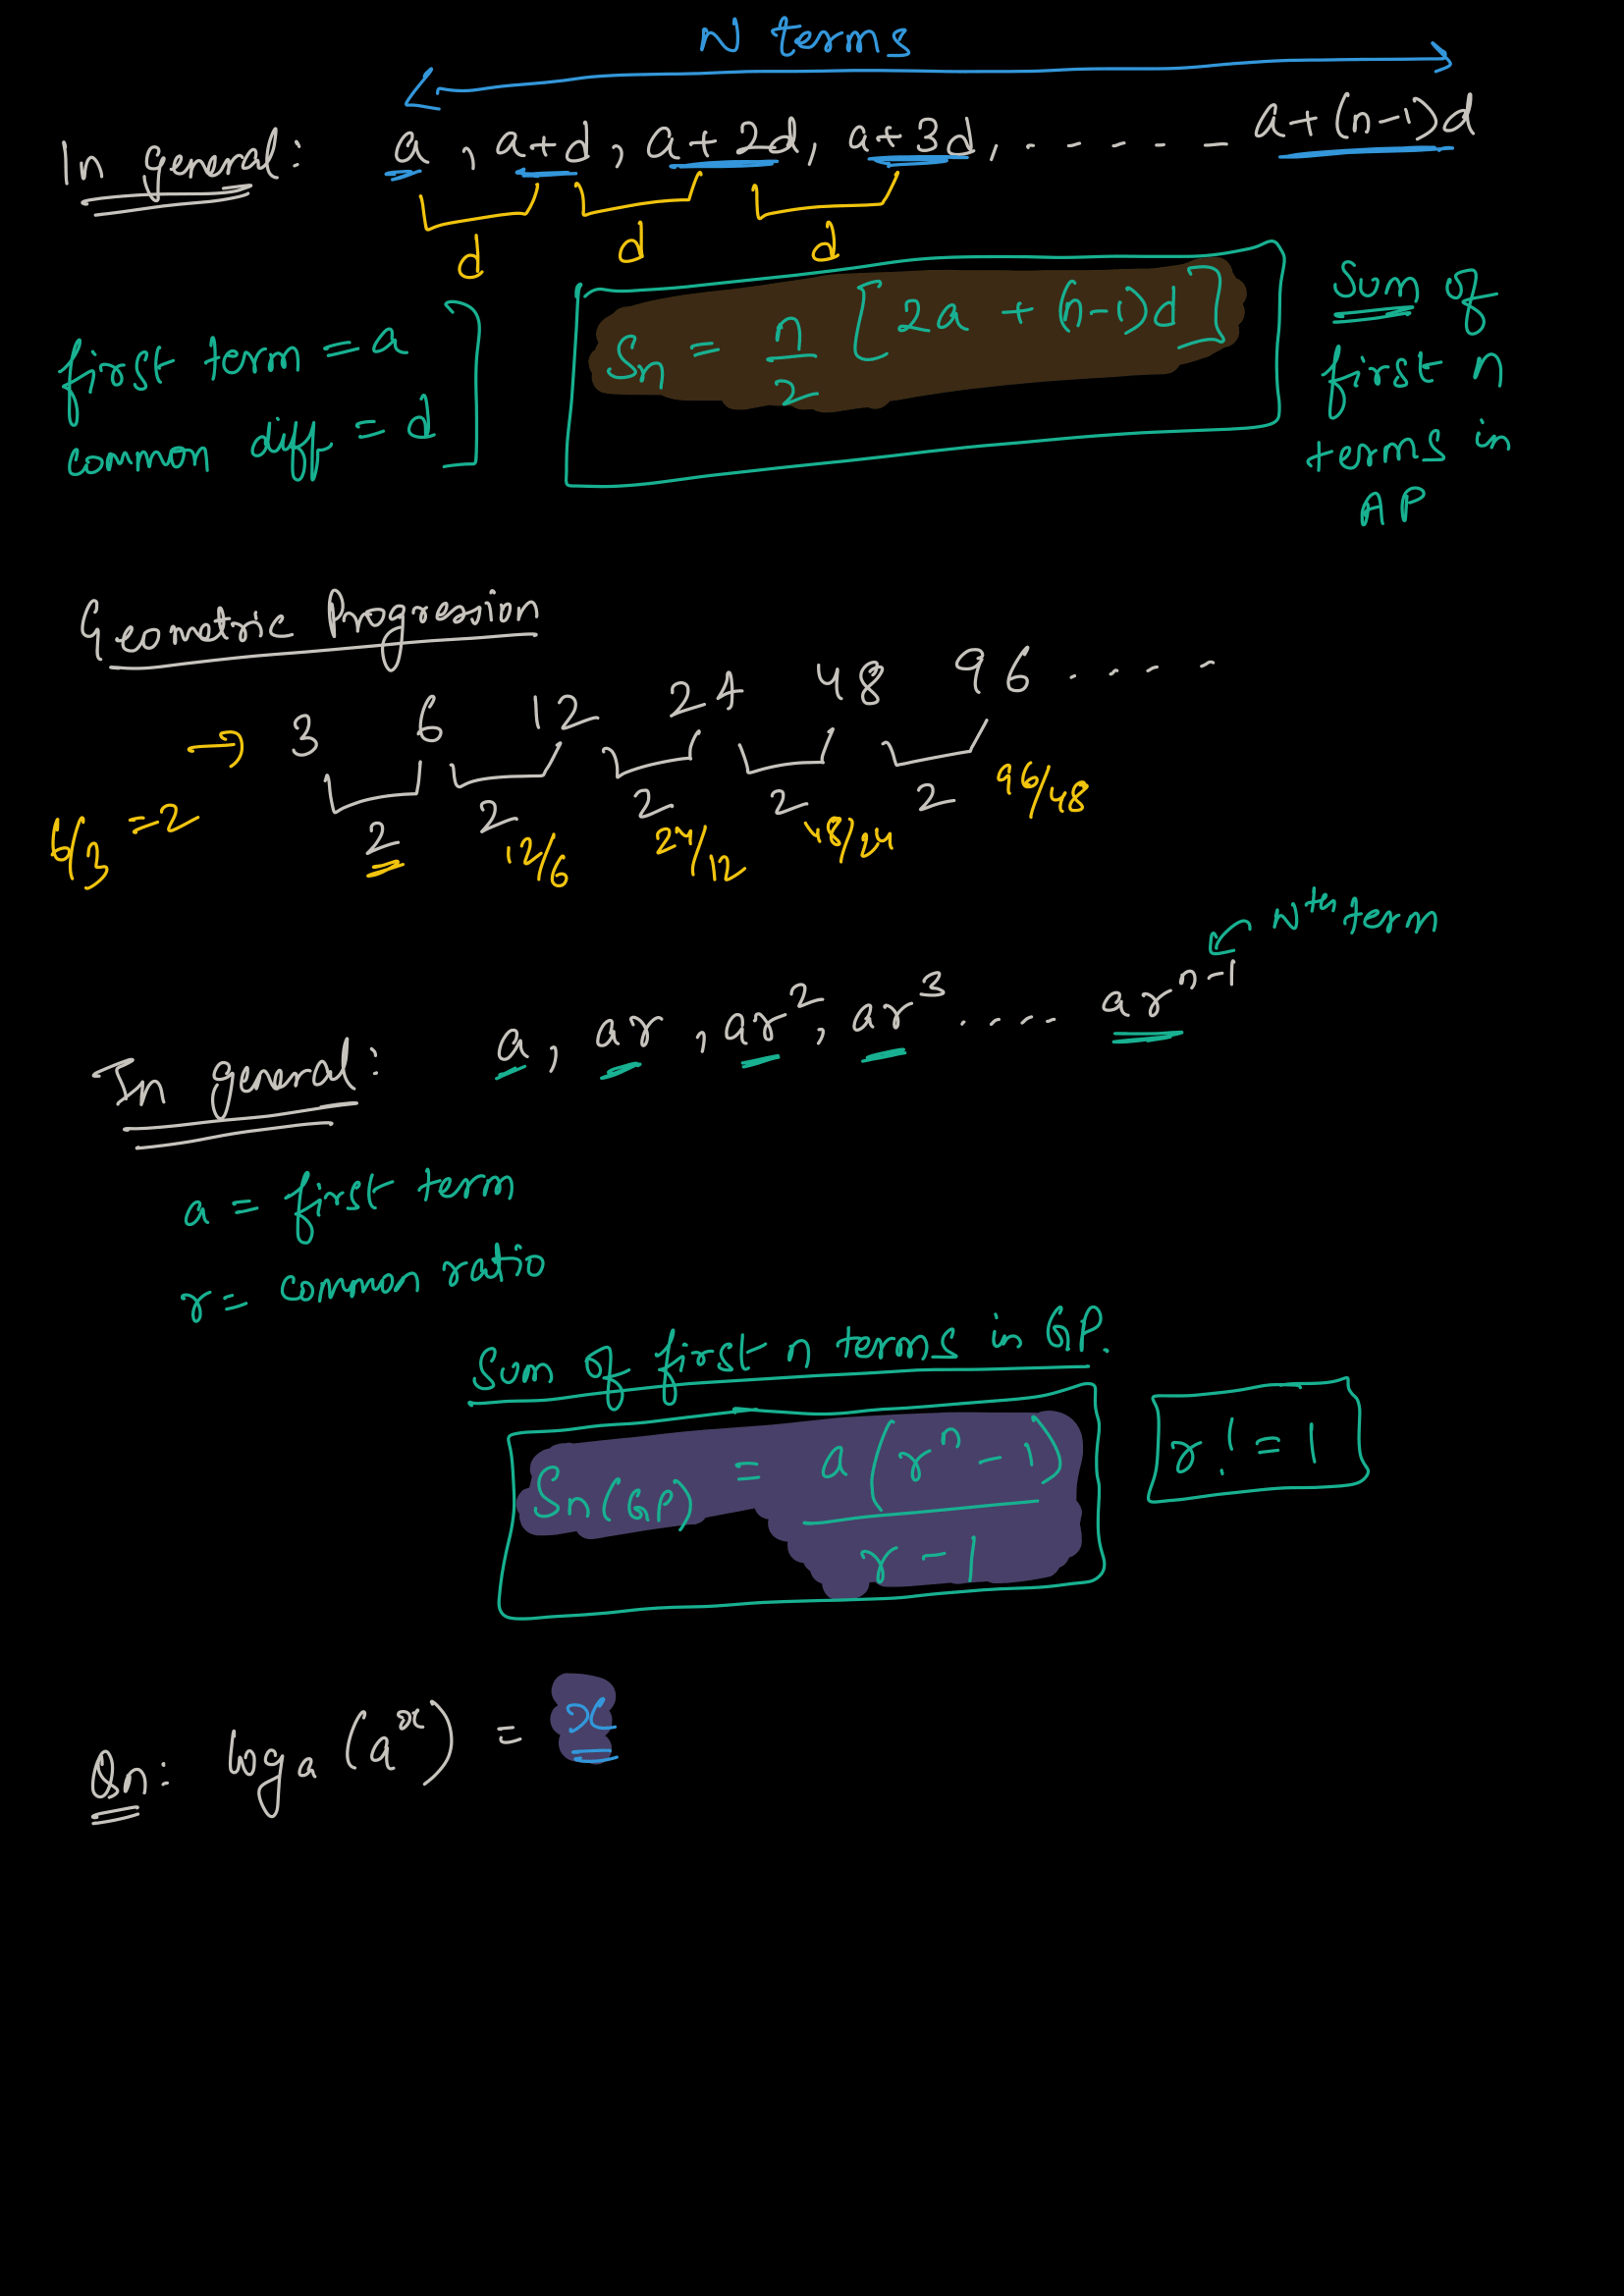 N terms
In general: a, a+d, a+2d, a+3d, ...... a+(n-1)d
d d d
first term = a
common diff = d
Sn = n/2 [2a + (n-1)d]
Sum of
first n
terms in
AP
Geometric Progression
→ 3 6 12 24 48 96 ....
6/3 =2 2 2 2 2 2
12/6 24/12 48/24 96/48
Nth term
In general: a, ar, ar², ar³ .... arⁿ⁻¹
a = first term
r = common ratio
Sum of first n terms in GP.
Sn(GP) = a(rⁿ - 1)/r - 1
r != 1
Qn: logₐ(aˣ) = x